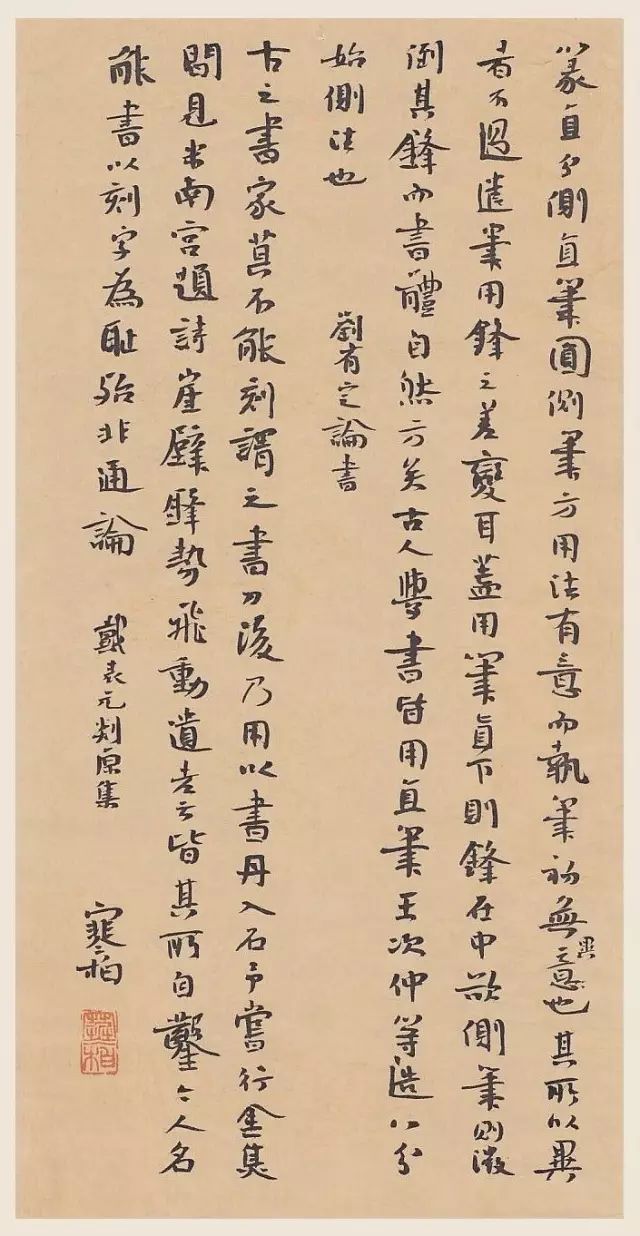 篆直分側直筆圓側筆方用法有意而執筆初無意也其所以異
異
者不過遣筆用鋒之差變耳蓋用筆直下則鋒在中欲側筆則微
倒其鋒而書體自然方矣古人學書皆用直筆王次仲等造八分
始側法也
劉有定論書
古之書家莫不能刻謂之書刀後乃用以書丹入石予嘗行金焦
閒見米南宮題詩崖壁鋒勢飛動遺老云皆其所自鑿今人名
能書以刻字為恥殆非通論
戴表元剡原集